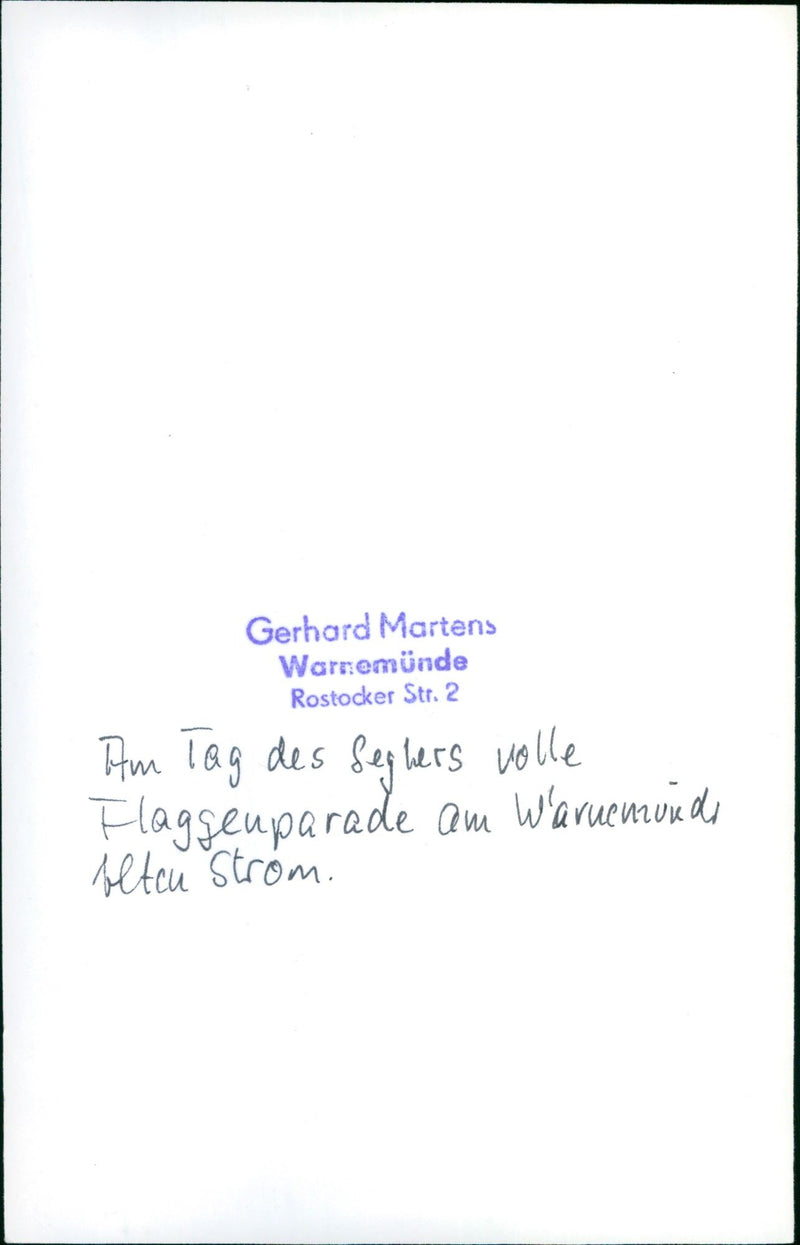 Gerhard Martens
Warnemünde
Rostocker Str. 2
Am Tag des Seglers volle
Flaggenparade am Warnemünder
Alten Strom.